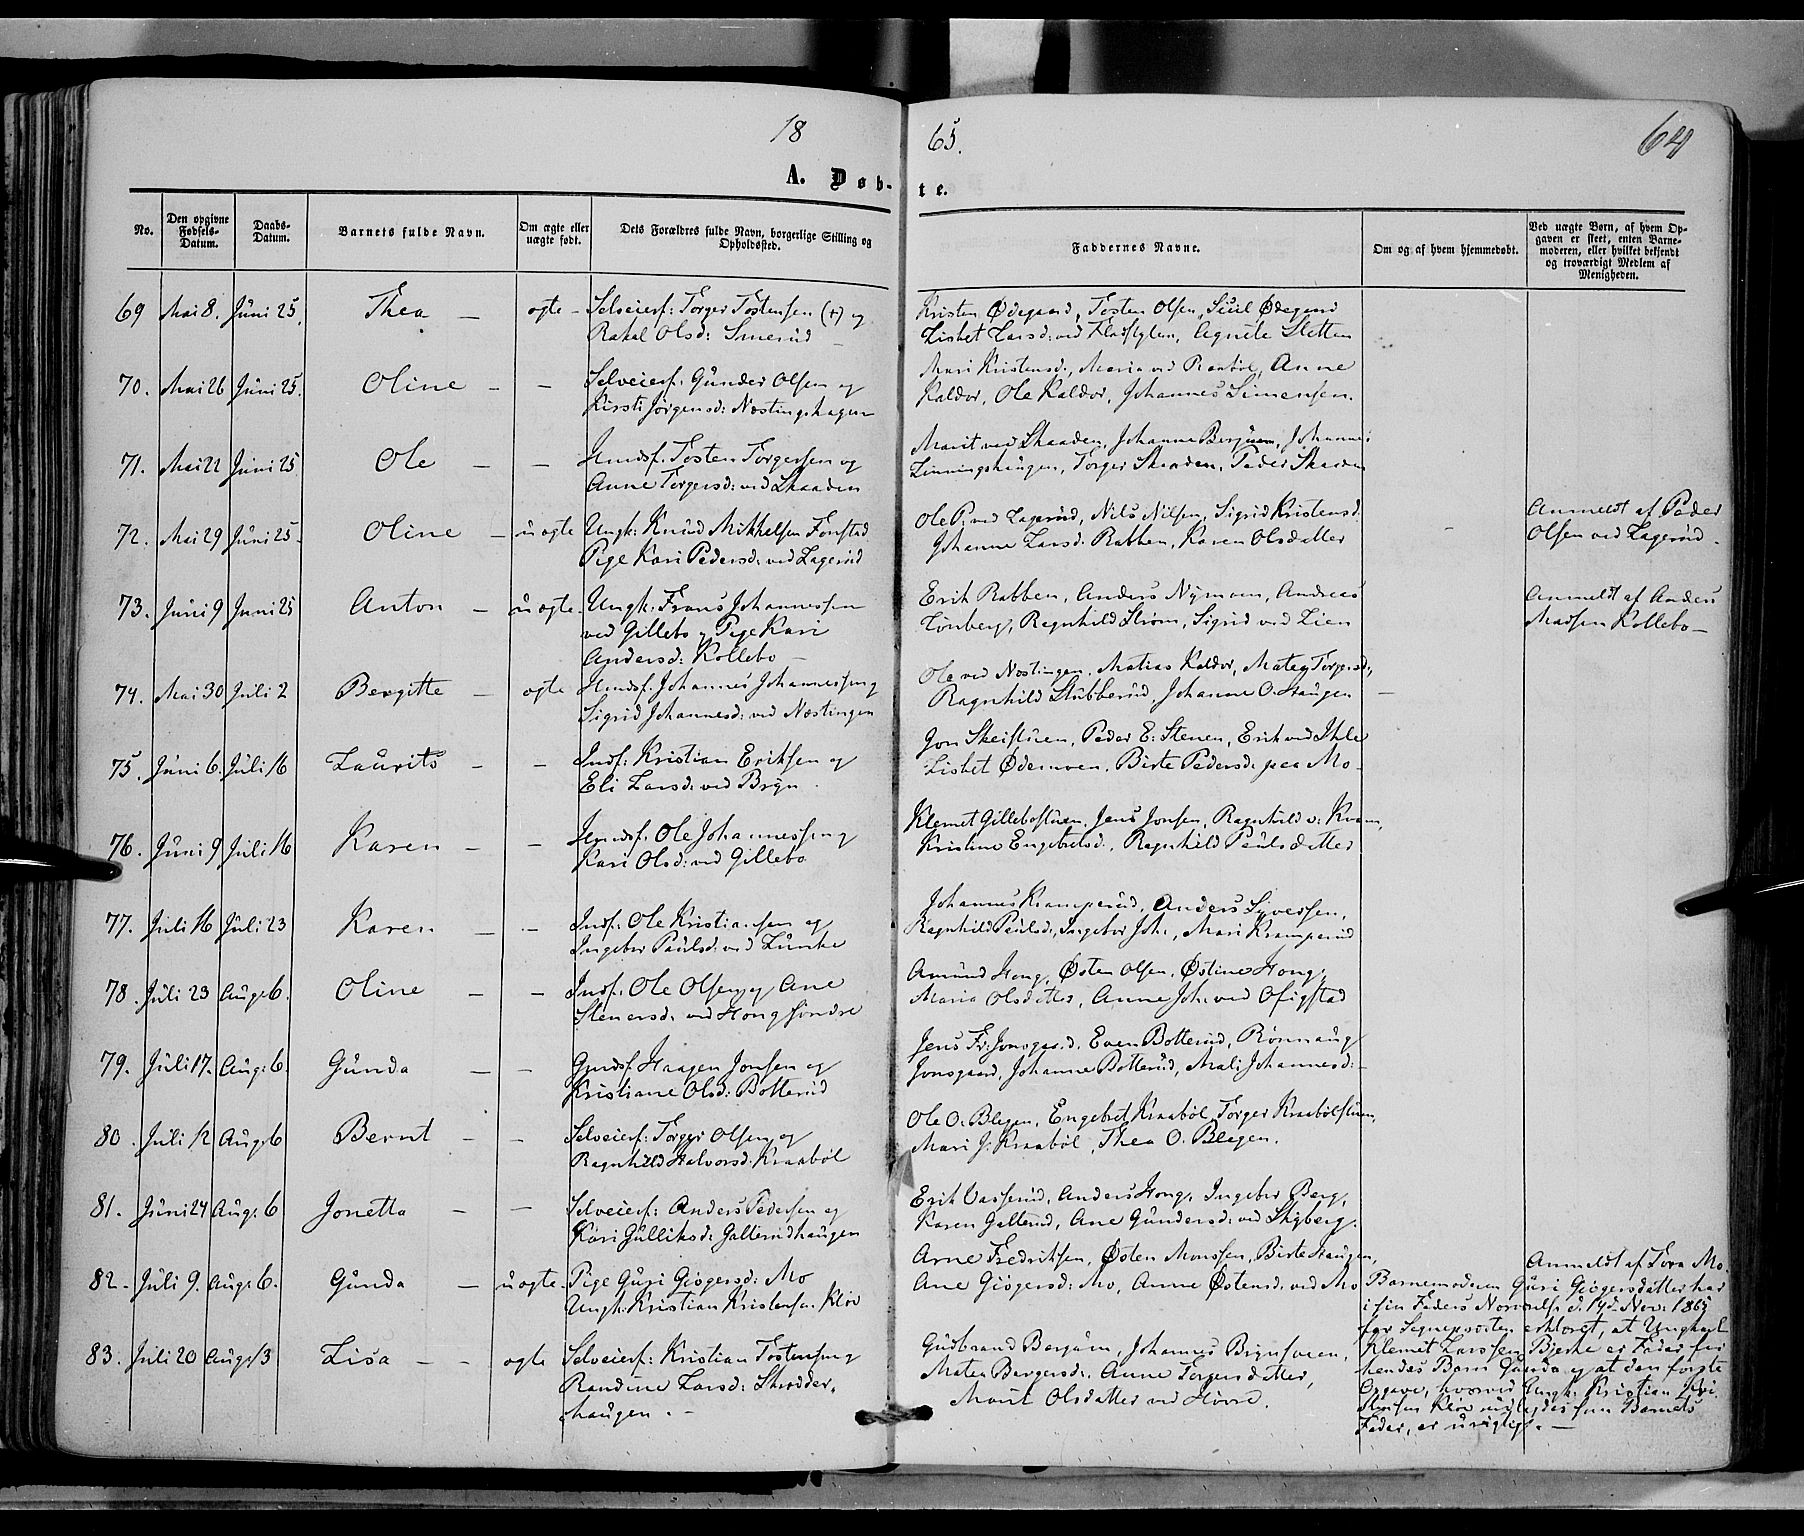 18
65.
64
A. Døb-
te.
No.
Den opgivne Fødsels-Datum.
Daabs-Datum.
Barnets fulde Navn.
Om ægte eller uægte født.
Dets Forældres fulde Navn, borgerlige Stilling og Opholdssted.
Faddernes Navne.
Om og af hvem hjemmedøbt.
Ved uægte Børn, af hvem Op-
gaven er skeet, enten Barne-
moderen, eller hvilket bekjendt
og troværdigt Medlem af
Menigheden.
69 Mai 8. Juni 25. Thea — ægte - Selveierf: Torger Tostensen (+) og
Rakel Olsd: Smerud
Kristen Ødegaard, Tosten Olsen, Ødegaard
Lisbet Larsd: ved, Agnete Sletten
70. Mai 26 Juni 25. Oline — — Selveierf: Gunder Olsen og
Kirsti Jørgensd: Næstingshagen
Mari Kristensd., Maria ved Raabøl, Anne
Kaldor, Ole Kaldor, Johannes Simensen.
71. Mai 22 Juni 25 Ole — — Huusf. Tosten Torgersen og
Anne Torgersd: ved Skaaden
Marit ved Skaaden, Johanne Berguum, Johannes
Linningshaugen, Torger Skaaden, Peder Skaaden
72. Mai 29 Juni 25. Oline — uægte Ungk: Knud Mikkelsen Fonstad
Pige Kari Pedersd: ved Lagerud
Ole P. ved Lagerud, Nils Nilsen, Sigrid Kristensd.
Johanne Larsd: Rabben, Karen Olsdatter
Anmeldt af Peder
Olsen ved Lagerud.
73. Juni 9 Juni 25 Anton — uægte. Ungk: Frans Johannessen
ved Gillebo og Pige Kari
Andersd: Kollebo —
Erik Rabben, Anders Nymoen, Andreas
Lønberg, Ragnhild Strøm, Sigrid ved Lien
Anmeldt af Anders
Madsen Kollebo —
74. Mai 30 Juli 2 Bergitte — ægte Huusf. Johannes Johannessen og
Sigrid Johannesd: ved Næstingen
Ole ved Næstingen, Matias Kaldor, Mate Torgersd.,
Ragnhild Stubberud, Johanne O. Haugen —
75. Juni 6. Juli 16 Laurits — — Indf: Kristian Eriksen og
Eli Larsd: ved Bryn.
Jon Skeistuen, Peder E. Stenen, Erik ved Ihle
Lisbet Ødemoen, Birte Pedersd: paa Mo —
76. Juni 9 Juli 16 Karen — — Huusf. Ole Johannessen og
Kari Olsd: ved Gillebo
Klemet Gillebostuen, Jens Jonsen, Ragnhild v. Kram,
Kristine Engebretsd., Ragnhild Paulsdatter
77. Juli 16 Juli 23 Karen — — Indf: Ole Kristiansen og
Ingebor Paulsd: ved Lunke
Johannes Kramperud, Anders Syversen,
Ragnhild Paulsd:, Ingebor Joh:, Mari Kramperud
78. Juli 23 Aug: 6. Oline — — Indf: Ole Olsen og Ane
Stenersd: ved Hong søndre
Amund Hong, Østen Olsen, Østine Hong,
Maria Olsdatter, Anne Joh: ved Ofigstad
79. Juli 17. Aug: 6. Gunda — — Haagen Jonsen og
Kristiane Olsd: Botterud
Jens Fr: Jonsgaard, Even Botterud, Rønnaug
Jonsgaard, Johanne Botterud, Mali Johannesd: —
80. Juli 12 Aug: 6 Bernt — — Selveierf: Torger Olsen og
Ragnhild Halvorsd: Kraabøl
Ole O. Blegen, Engebret Kraabøl, Torger Kraabølstuen,
Mari J. Kraabøl, Thea O. Blegen.
81. Juni 24 Aug: 6 Jonetta — — Selveierf: Anders Pedersen og
Kari Gulliksd: Galterudhaugen
Erik Vasserud, Anders Hong, Ingebor Berg,
Karen Galterud, Ane Gundersd: ved Skyberg.
82. Juli 9. Aug: 6. Gunda — uægte. Pige Guri Gisgersd: Mo
Ungk: Kristian Kristensen Kløv
Arne Fredriksen, Østen Monssen, Birte Haugen,
Ane Gisgersd: Mo, Anne Østensd: ved Mo
Anmeldt af Tora Mo.
Barnemoderen Guri Gisgersdatter har
i sin Faders Nærværelse d. 14d. Nov: 1865
for Sognepræsten erklæret, at Ungkarl
Klemet Larssen Bjerke er Fader for
hendes Barn Gunda og at den første
Opgave, hvorved Ungk: Kristian Kri-
stensen Kløv udlagdes som Barnets
Fader, er urigtig. —
83. Juli 20 Aug: 13 Lisa — — ægte Selveierf: Kristian Tostensen og
Randine Larsd: Skredder-
haugen. —
Gudbrand Berguum, Johannes Brynsveen,
Mate Bergersd:, Anne Torgersdatter,
Marit Olsdatter ved Hovre.